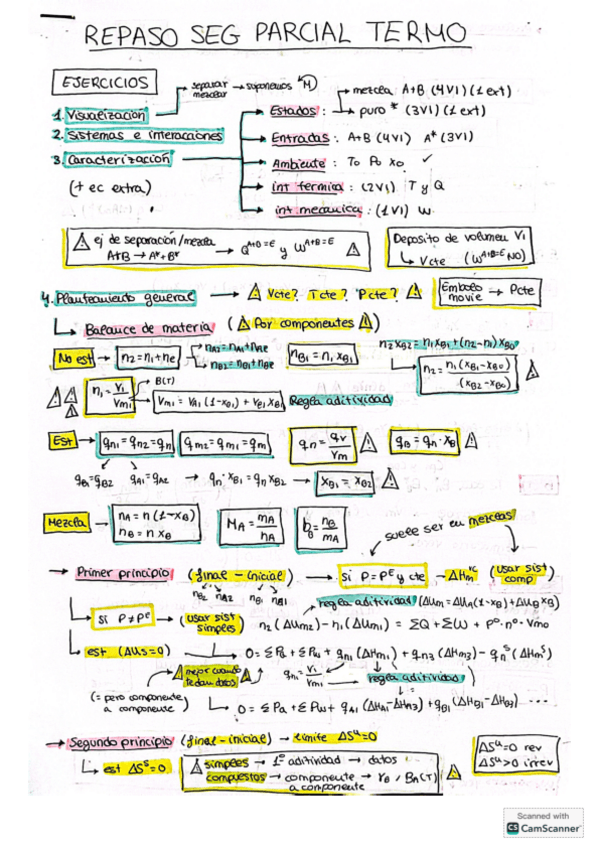 REPASO SEG PARCIAL TERMO
EJERCICIOS
separar
mezclar → suponemos "M"
1. Visualización
2. Sistemas e interacciones
3. Caracterización
(+ ec extra)
Estados: → mezcla: A+B (4VI) (1 ext)
→ puro * (3VI) (1 ext)
Entradas: A+B (4VI) A* (3VI)
Ambiente: To Po xo ✓
int termica: (2VI) T y Q
int mecanica: (1VI) W
⚠ ej de separación/mezcla
A+B → A*+B* → Q^A+B=E y W^A+B=E ⚠
Deposito de volumen V1
↳ Vcte (W^A+B=E NO)
4. Planteamiento general → ⚠ Vcte? Tcte? Pcte? ⚠
Embolo movie → Pcte
↳ Balance de materia (⚠ Por componentes ⚠)
No est → n2 = n1 + ne → nA2 = nA1 + nAe
→ nB2 = nB1 + nBe
nB1 = n1 xB1
n2 xB2 = n1 xB1 + (n2-n1) xB0
n2 = n1 (xB1 - xB0) / (xB2 - xB0) ⚠
⚠ n1 = V1 / Vm1 → B(T)
→ Vm1 = VA1 (1-xB1) + VB1 xB1 Regla aditividad
Est → qn1 = qn2 = qn qm2 = qm1 = qm qn = qv / Vm ⚠ qB = qn · xB ⚠
qB1 = qB2 qA1 = qA2 → qn · xB1 = qn xB2 → xB1 = xB2 ⚠
Mezcla → nA = n (1-xB)
nB = n xB
MA = mA / nA
bB = nB / mA
suele ser en mezclas
→ Primer principio (final - inicial) → Si P = P^E y cte → ΔHm (usar sist comp)
nB2 nA2 nB1 nA1
→ regla aditividad (ΔUm = ΔUA (1-xB) + ΔUB xB)
→ Si P ≠ P^E → (usar sist simples) n2 (ΔUm2) - n1 (ΔUm1) = ΣQ + ΣW + P° · n° · Vmo
↳ est (ΔUs=0) → 0 = ΣPa + ΣPw + qn1 (ΔHm1) + qn3 (ΔHm3) - qn^s (ΔHm^s)
⚠ mejor cuando te dan datos
qn1 = V1 / Vm1 → regla aditividad
(= pero componente a componente)
↳ 0 = ΣPa + ΣPw + qA1 (ΔHA1 - ΔHA3) + qB1 (ΔHB1 - ΔHB3) ...
→ Segundo principio (final - inicial) → limite ΔS^u=0
↳ est ΔS^s=0
⚠ simples → 1º aditividad → datos
compuestos → componente a componente → γB, BA(T) ⚠
ΔS^u=0 rev
ΔS^u>0 irrev
Scanned with
CS CamScanner